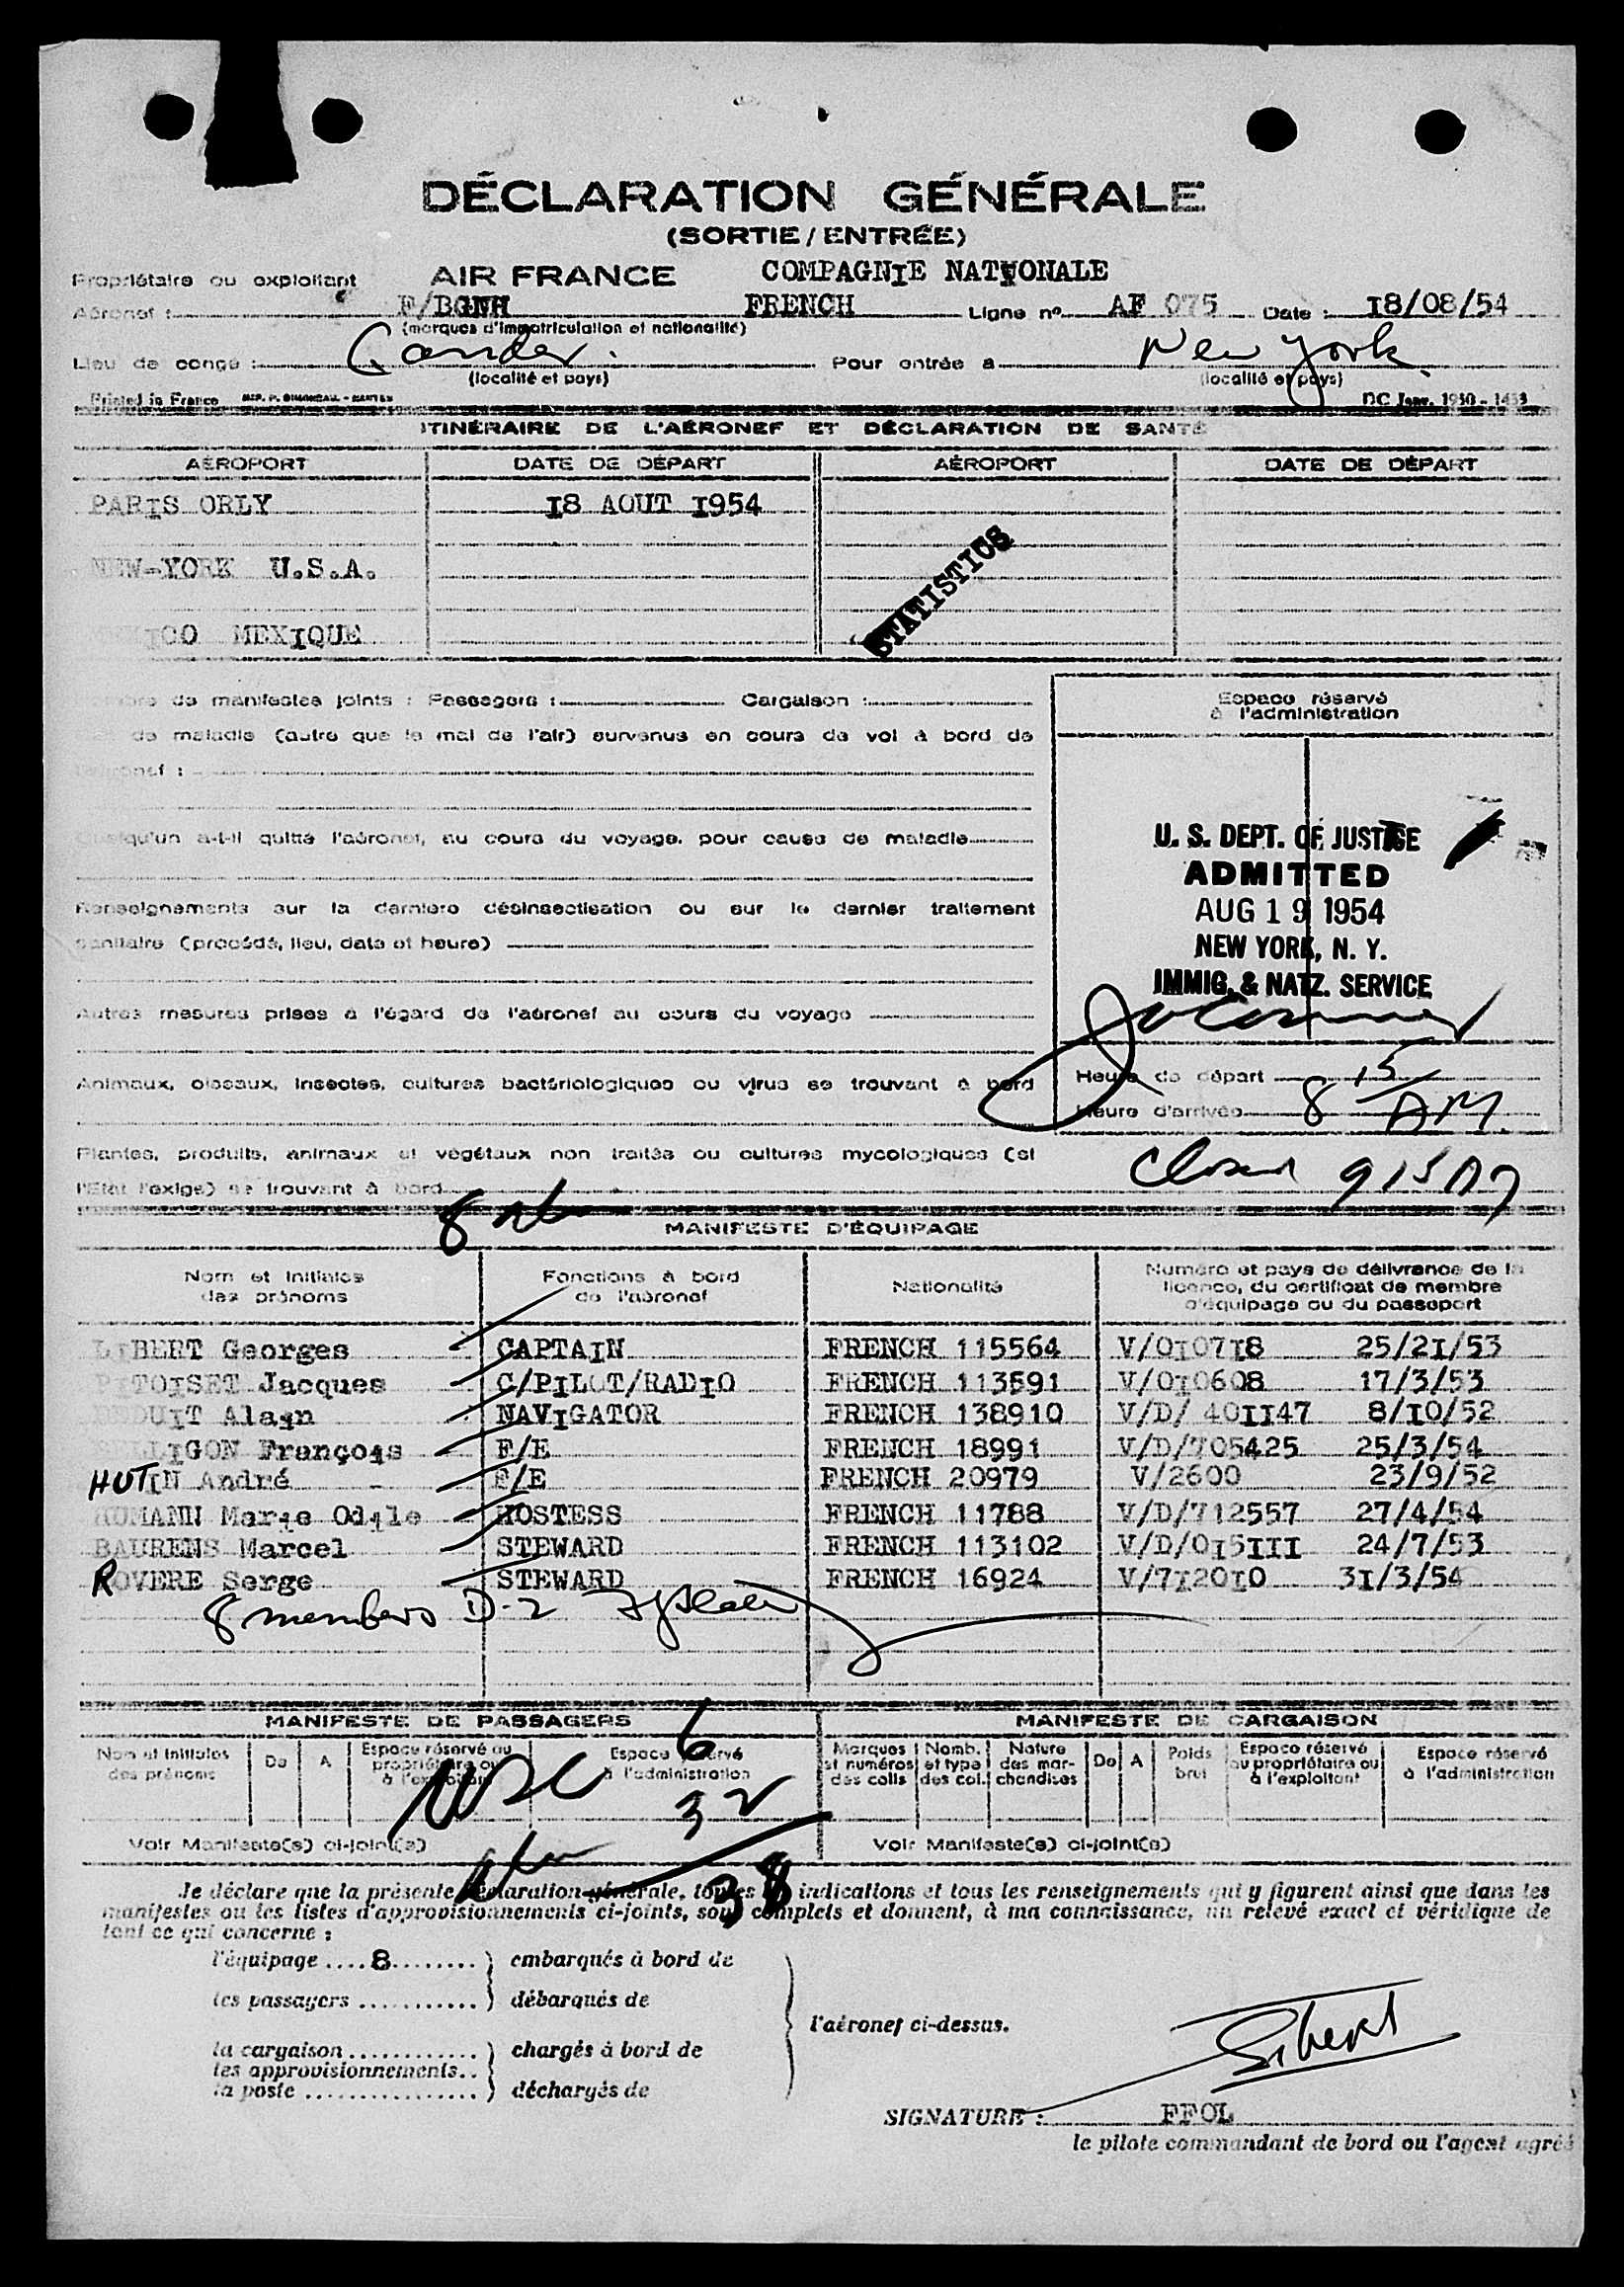 DÉCLARATION GÉNÉRALE
(SORTIE / ENTRÉE)
Propriétaire ou exploitant AIR FRANCE COMPAGNIE NATIONALE
Aéronef : F/BGNH FRENCH Ligne nº AF 075 Date : I8/08/54
(marques d'immatriculation et nationalité)
Lieu de congé : Gander Pour entrée à New York
(localité et pays) (localité et pays)
Printed in France DC Janv. 1950 -
ITINÉRAIRE DE L'AÉRONEF ET DÉCLARATION DE SANTÉ
AÉROPORT DATE DE DÉPART AÉROPORT DATE DE DÉPART
PARIS ORLY I8 AOUT I954
NEW-YORK U.S.A.
STATISTICS
MEXIQUE
de manifestes joints : Passagers : Cargaison :
Espace réservé
à l'administration
de maladie (autre que le mal de l'air) survenus en cours de vol à bord de
l'aéronef :
Quelqu'un a-t-il quitté l'aéronef, au cours du voyage, pour cause de maladie
U. S. DEPT. OF JUSTICE
ADMITTED
AUG 19 1954
NEW YORK, N. Y.
IMMIG. & NATZ. SERVICE
Renseignements sur la dernière désinsectisation ou sur le dernier traitement
sanitaire (procédé, lieu, date et heure)
Autres mesures prises à l'égard de l'aéronef au cours du voyage
Animaux, oiseaux, insectes, cultures bactériologiques ou virus se trouvant à bord
Heure de départ
Heure d'arrivée 8 15 AM
Plantes, produits, animaux et végétaux non traités ou cultures mycologiques (si
l'Etat l'exige) se trouvant à bord
Closed 915 A
8
MANIFESTE D'ÉQUIPAGE
Nom et initiales des prénoms Fonctions à bord de l'aéronef Nationalité Numéro et pays de délivrance de la licence, du certificat de membre d'équipage ou du passeport
LIBERT Georges CAPTAIN FRENCH 115564 V/0I07I8 25/2I/53
PITOISET Jacques C/PILOT/RADIO FRENCH 113591 V/0I0608 17/3/53
Alain NAVIGATOR FRENCH 138910 V/D/ 40II47 8/I0/52
François F/E FRENCH 18991 V/D/705425 25/3/54
HUTIN André F/E FRENCH 20979 V/2600 23/9/52
HUMANN Marie Odile HOSTESS FRENCH 11788 V/D/712557 27/4/54
BAURENS Marcel STEWARD FRENCH 113102 V/D/0I5III 24/7/53
ROVERE Serge STEWARD FRENCH 16924 V/7I20I0 3I/3/54
8 members D-2
MANIFESTE DE PASSAGERS MANIFESTE DE CARGAISON
Nom et initiales des prénoms De A Espace réservé au propriétaire ou à l'exploitant Espace réservé à l'administration Marques et numéros des colis Nomb. et type des col. Nature des marchandises De A Poids brut Espace réservé au propriétaire ou à l'exploitant Espace réservé à l'administration
USC 6
32
Voir Manifeste(s) ci-joint(s) Voir Manifeste(s) ci-joint(s)
38
Je déclare que la présente déclaration générale, toutes indications et tous les renseignements qui y figurent ainsi que dans les
manifestes ou les listes d'approvisionnements ci-joints, sont complets et donnent, à ma connaissance, un relevé exact et véridique de
tout ce qui concerne :
l'équipage .... 8 ........ embarqués à bord de
les passagers ........... débarqués de
l'aéronef ci-dessus.
la cargaison ............ chargés à bord de
les approvisionnements..
la poste ................ déchargés de
Libert
SIGNATURE : FFOL
le pilote commandant de bord ou l'agent agréé